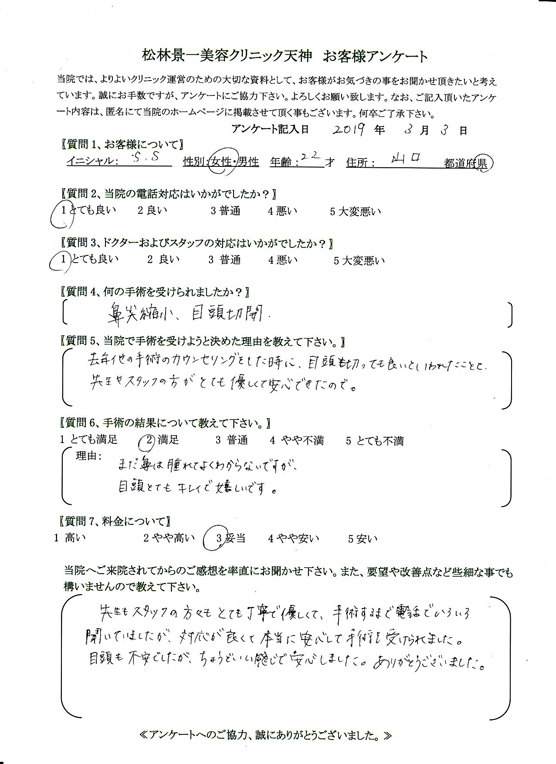 松林景一美容クリニック天神　お客様アンケート
当院では、よりよいクリニック運営のための大切な資料として、お客様がお気づきの事をお聞かせ頂きたいと考え
ています。誠にお手数ですが、アンケートにご協力下さい。よろしくお願い致します。なお、ご記入頂いたアンケ
ート内容は、匿名にて当院のホームページに掲載させて頂く事もございます。何卒ご了承下さい。
アンケート記入日　2019　年　3　月　3　日
〖質問1、お客様について〗
イニシャル：　S.S　性別：女性・男性　年齢：22　才　住所：　山口　都道府県
〖質問2、当院の電話対応はいかがでしたか？〗
1 とても良い　2 良い　3 普通　4 悪い　5 大変悪い
〖質問3、ドクターおよびスタッフの対応はいかがでしたか？〗
1 とても良い　2 良い　3 普通　4 悪い　5 大変悪い
〖質問4、何の手術を受けられましたか？〗
鼻尖縮小、目頭切開.
〖質問5、当院で手術を受けようと決めた理由を教えて下さい。〗
去年他の手術のカウンセリングをした時に、目頭も切っても良いといわれたことと、
先生やスタッフの方がとても優しくて安心できたので。
〖質問6、手術の結果について教えて下さい。〗
1 とても満足　2 満足　3 普通　4 やや不満　5 とても不満
理由：
まだ鼻は腫れてよくわからないですが、
目頭とてもキレイで嬉しいです。
〖質問7、料金について〗
1 高い　2 やや高い　3 妥当　4 やや安い　5 安い
当院へご来院されてからのご感想を率直にお聞かせ下さい。また、要望や改善点など些細な事でも
構いませんので教えて下さい。
先生もスタッフの方々もとても丁寧で優しくて、手術するまで電話でいろいろ
聞いていましたが、対応が良くて本当に安心して手術を受けられました。
目頭も不安でしたが、ちょうどいい感じで安心しました。ありがとうございました。
≪アンケートへのご協力、誠にありがとうございました。≫